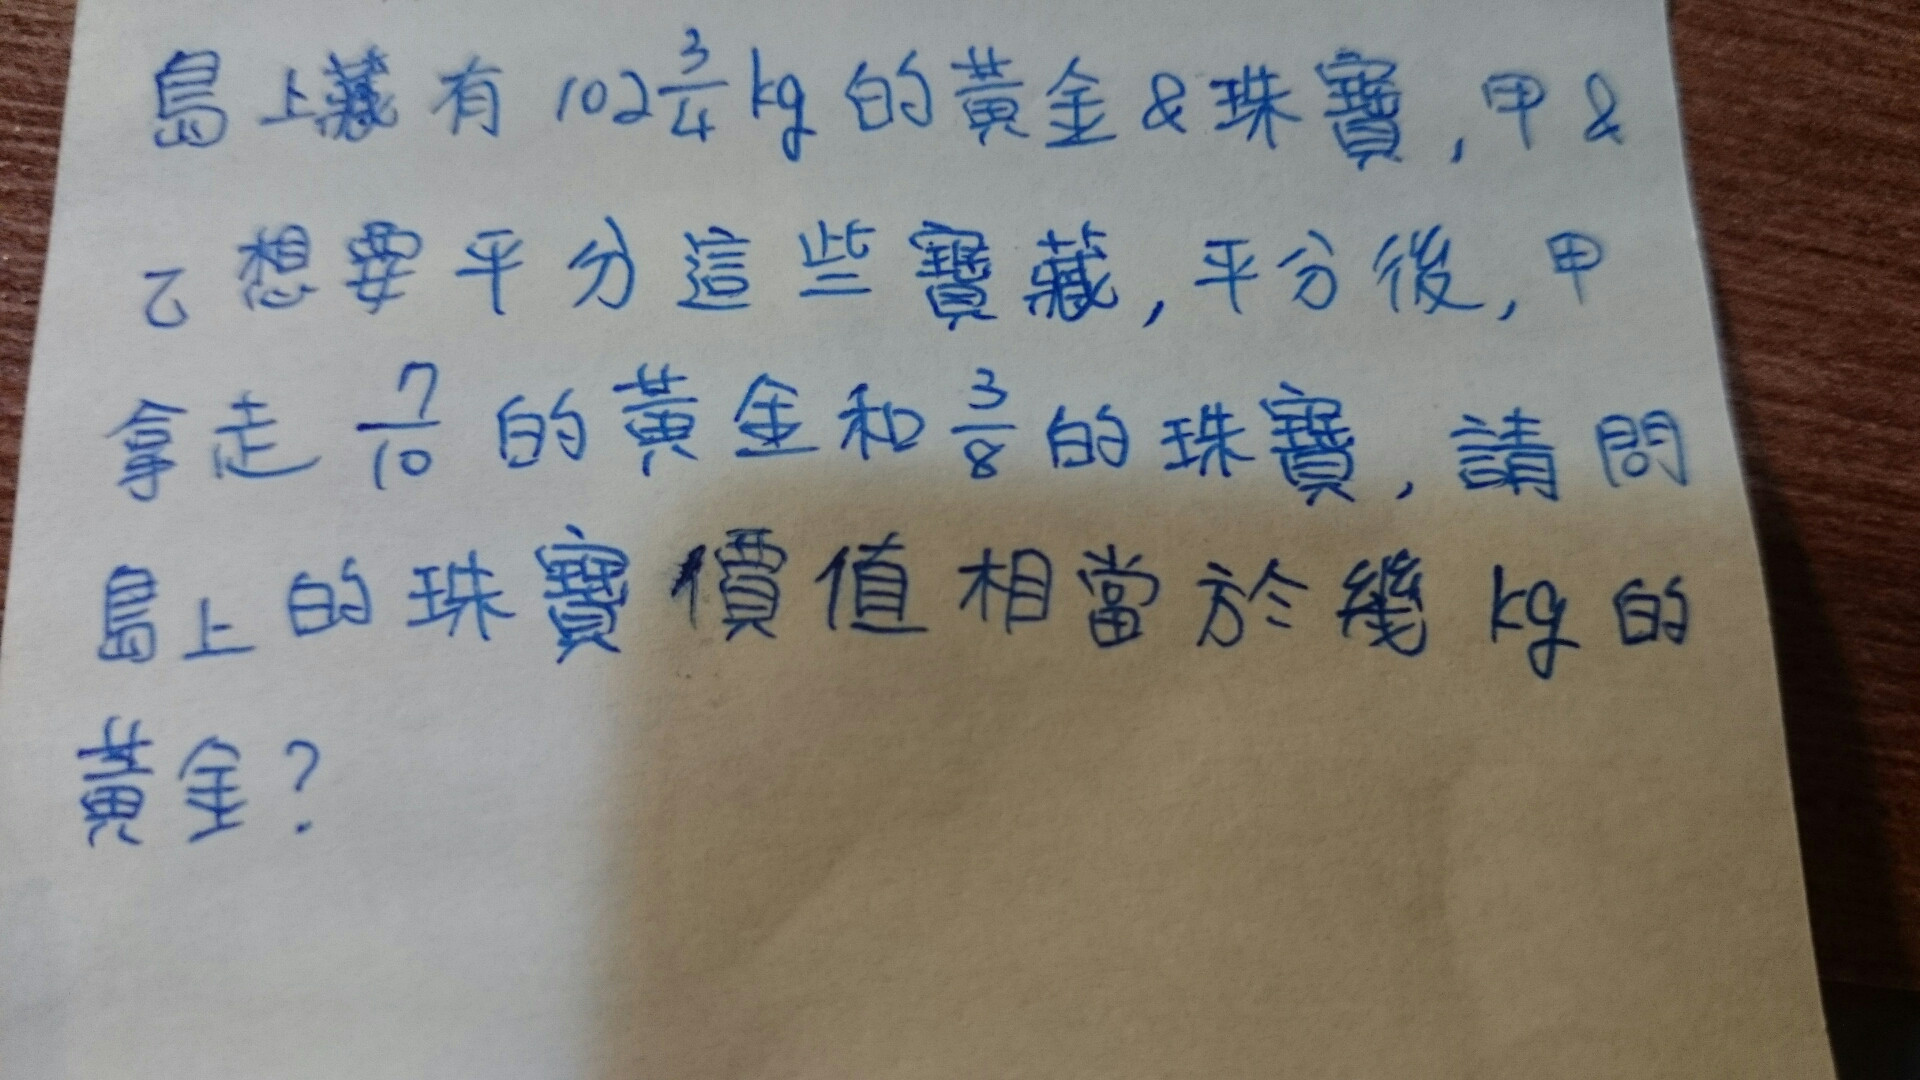 島上藏有102 3/4 kg的黃金&珠寶,甲&
乙想要平分這些寶藏,平分後,甲
拿走7/10的黃金和3/8的珠寶,請問
島上的珠寶價值相當於幾kg的
黃金?